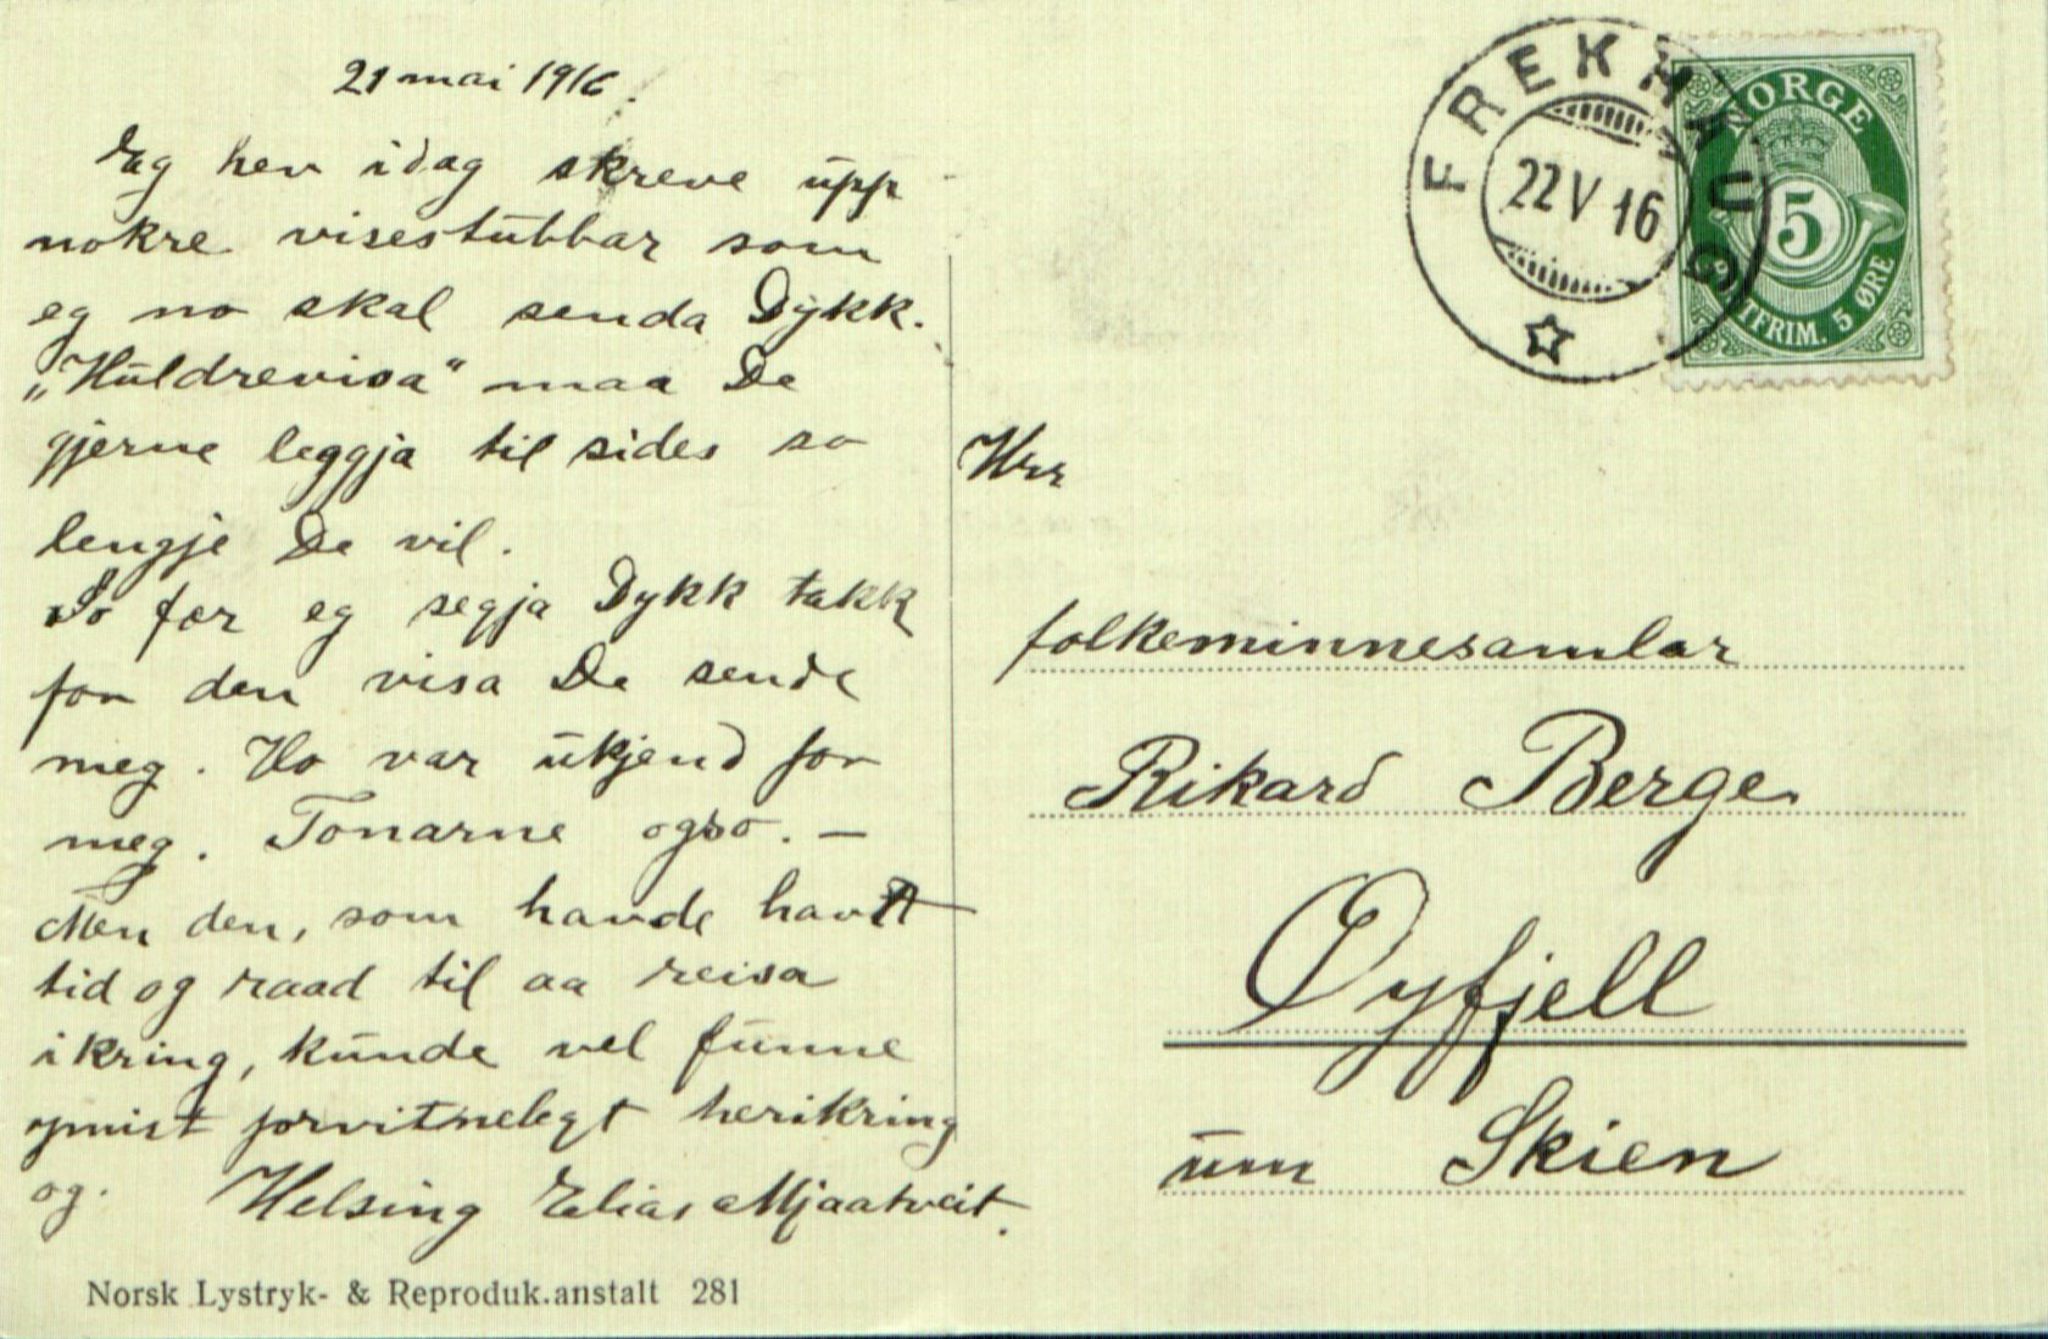 21 mai 1916.
Eg hev idag skreve upp
nokre visestubbar som
eg no skal senda Dykk.
„Huldrevisa" maa De
gjerne leggja til sides so
lengje De vil.
So fær eg segja Dykk takk
for den visa De sende
meg. Ho var ukjend for
meg. Tonarne ogso. —
Men den, som havde havt
tid og raad til aa reisa
ikring, kunde vel funne
ymist forvitnelegt herikring
og. Helsing Elias Mjaatveit.
Norsk Lystryk- & Reproduk.anstalt 281
FREKHAUG
22 V 16
NORGE
5
FRIM. 5 ØRE
Hrr
folkeminnesamlar
Rikard Berge
Øyfjell
um Skien